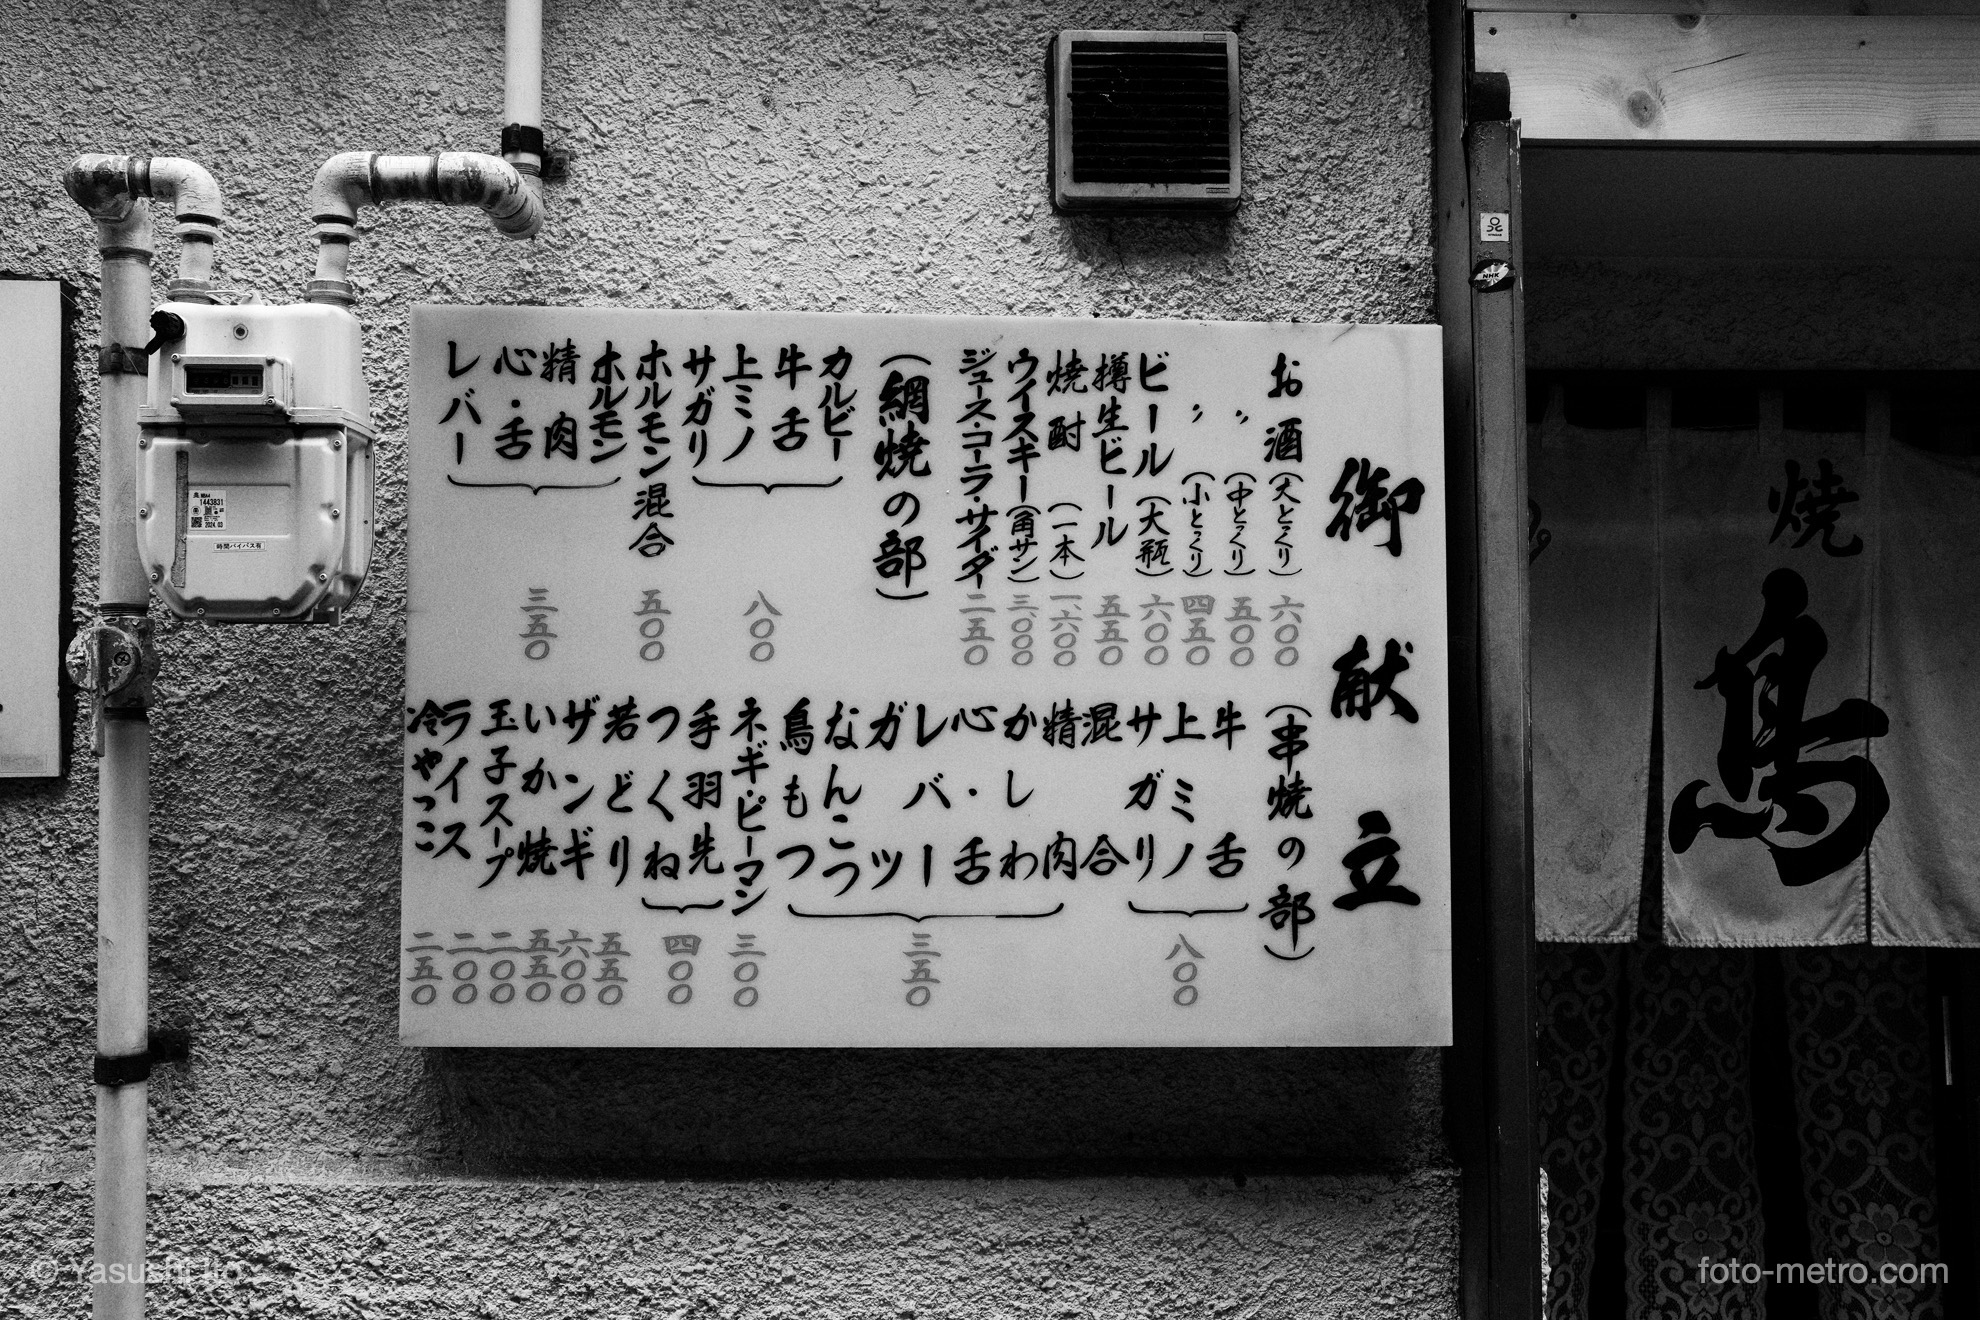 御献立
お酒(大とくり)六〇〇
〃(中とくり)五〇〇
〃(小とくり)四五〇
ビール(大瓶)六〇〇
樽生ビール五五〇
焼酎(一本)一、六〇〇
ウイスキー(角サン)三、〇〇〇
ジュース・コーラ・サイダー二五〇
(網焼の部)
カルビー
牛舌
上ミノ
サガリ
八〇〇
ホルモン混合五〇〇
ホルモン
精肉
心・舌
レバー
三五〇
(串焼の部)
牛舌
上ミノ
サガリ
八〇〇
混合
精肉
かしわ
心・舌
レバー
ガツ
なんこつ
鳥もつ
三五〇
ネギ・ピーマン三〇〇
手羽先
つくね
四〇〇
若どり五五〇
ザンギ六〇〇
いか焼五五〇
玉子スープ二〇〇
ライス二〇〇
冷やっこ二五〇
焼鳥
NHK
1443831
2024.03
時間バイパス有
© Yasushi Ito
foto-metro.com